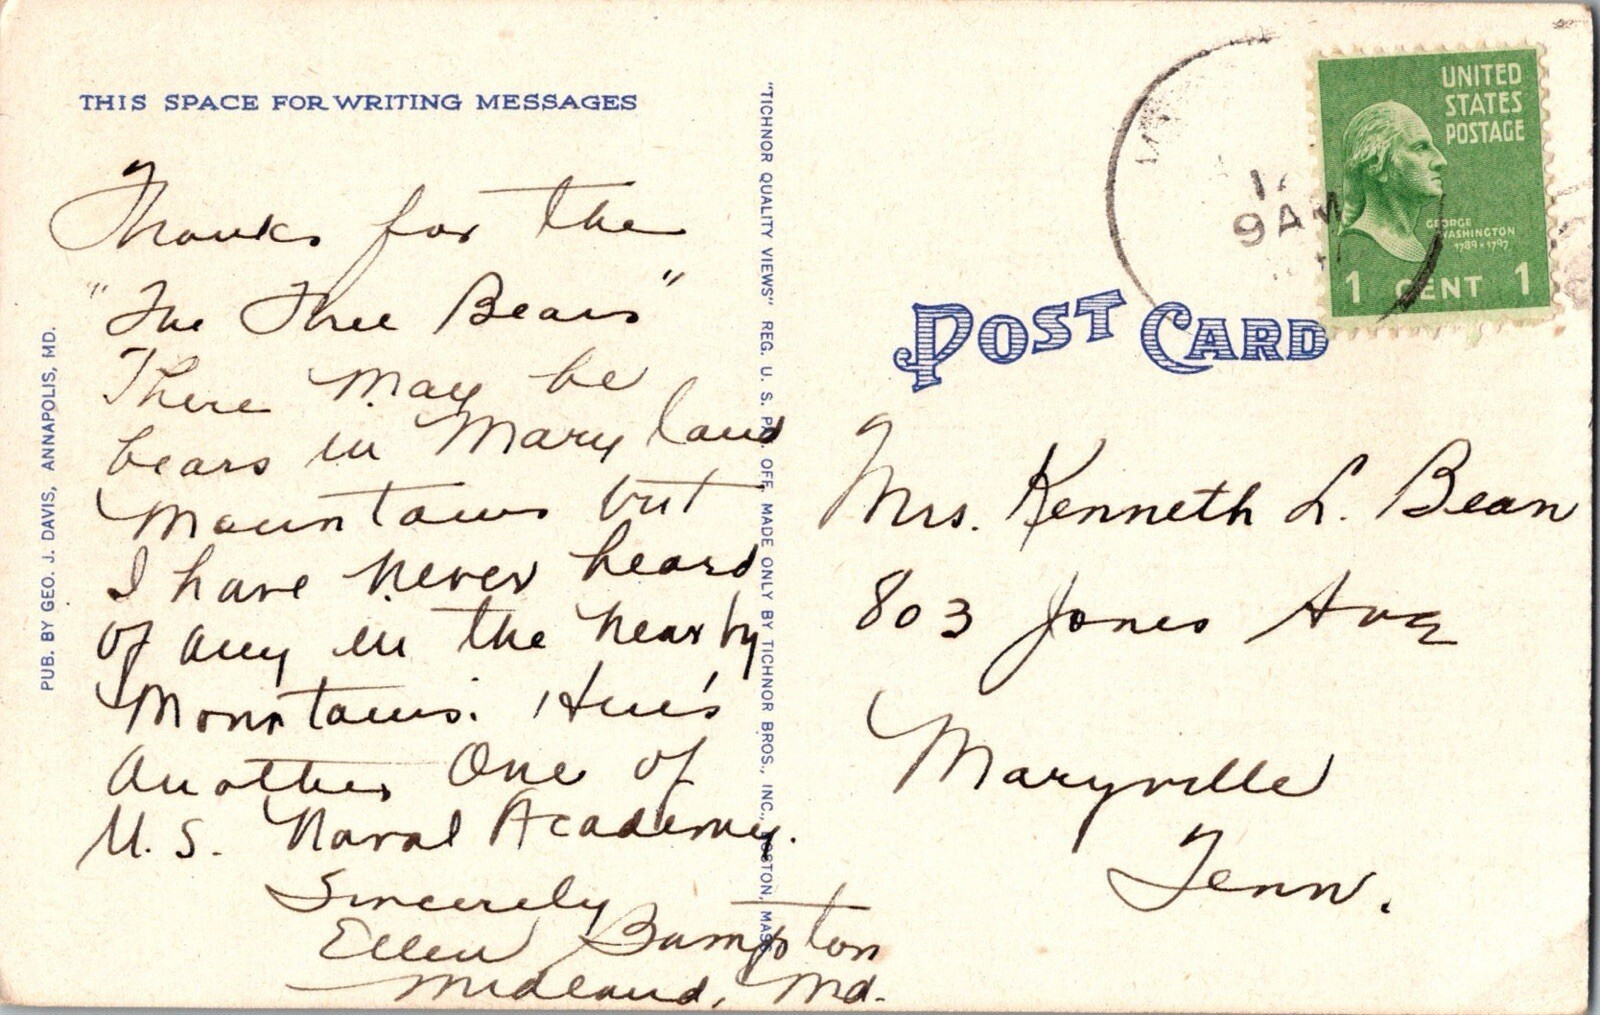 THIS SPACE FOR WRITING MESSAGES
Thanks for the
"The Three Bears"
There may be
bears in Maryland
Mountains but
I have never heard
of any in the nearby
Mountains. Here's
another One of
U.S. Naval Academy.
Sincerely
Ellen Bampton
Midland, Md.
PUB. BY GEO. J. DAVIS, ANNAPOLIS, MD.
"TICHNOR QUALITY VIEWS" REG. U. S. PAT. OFF. MADE ONLY BY TICHNOR BROS., INC., BOSTON, MASS.
9 AM
UNITED
STATES
POSTAGE
GEORGE
WASHINGTON
1789-1797
1 CENT 1
POST CARD
Mrs. Kenneth L. Bean
803 Jones Ave
Maryville
Tenn.